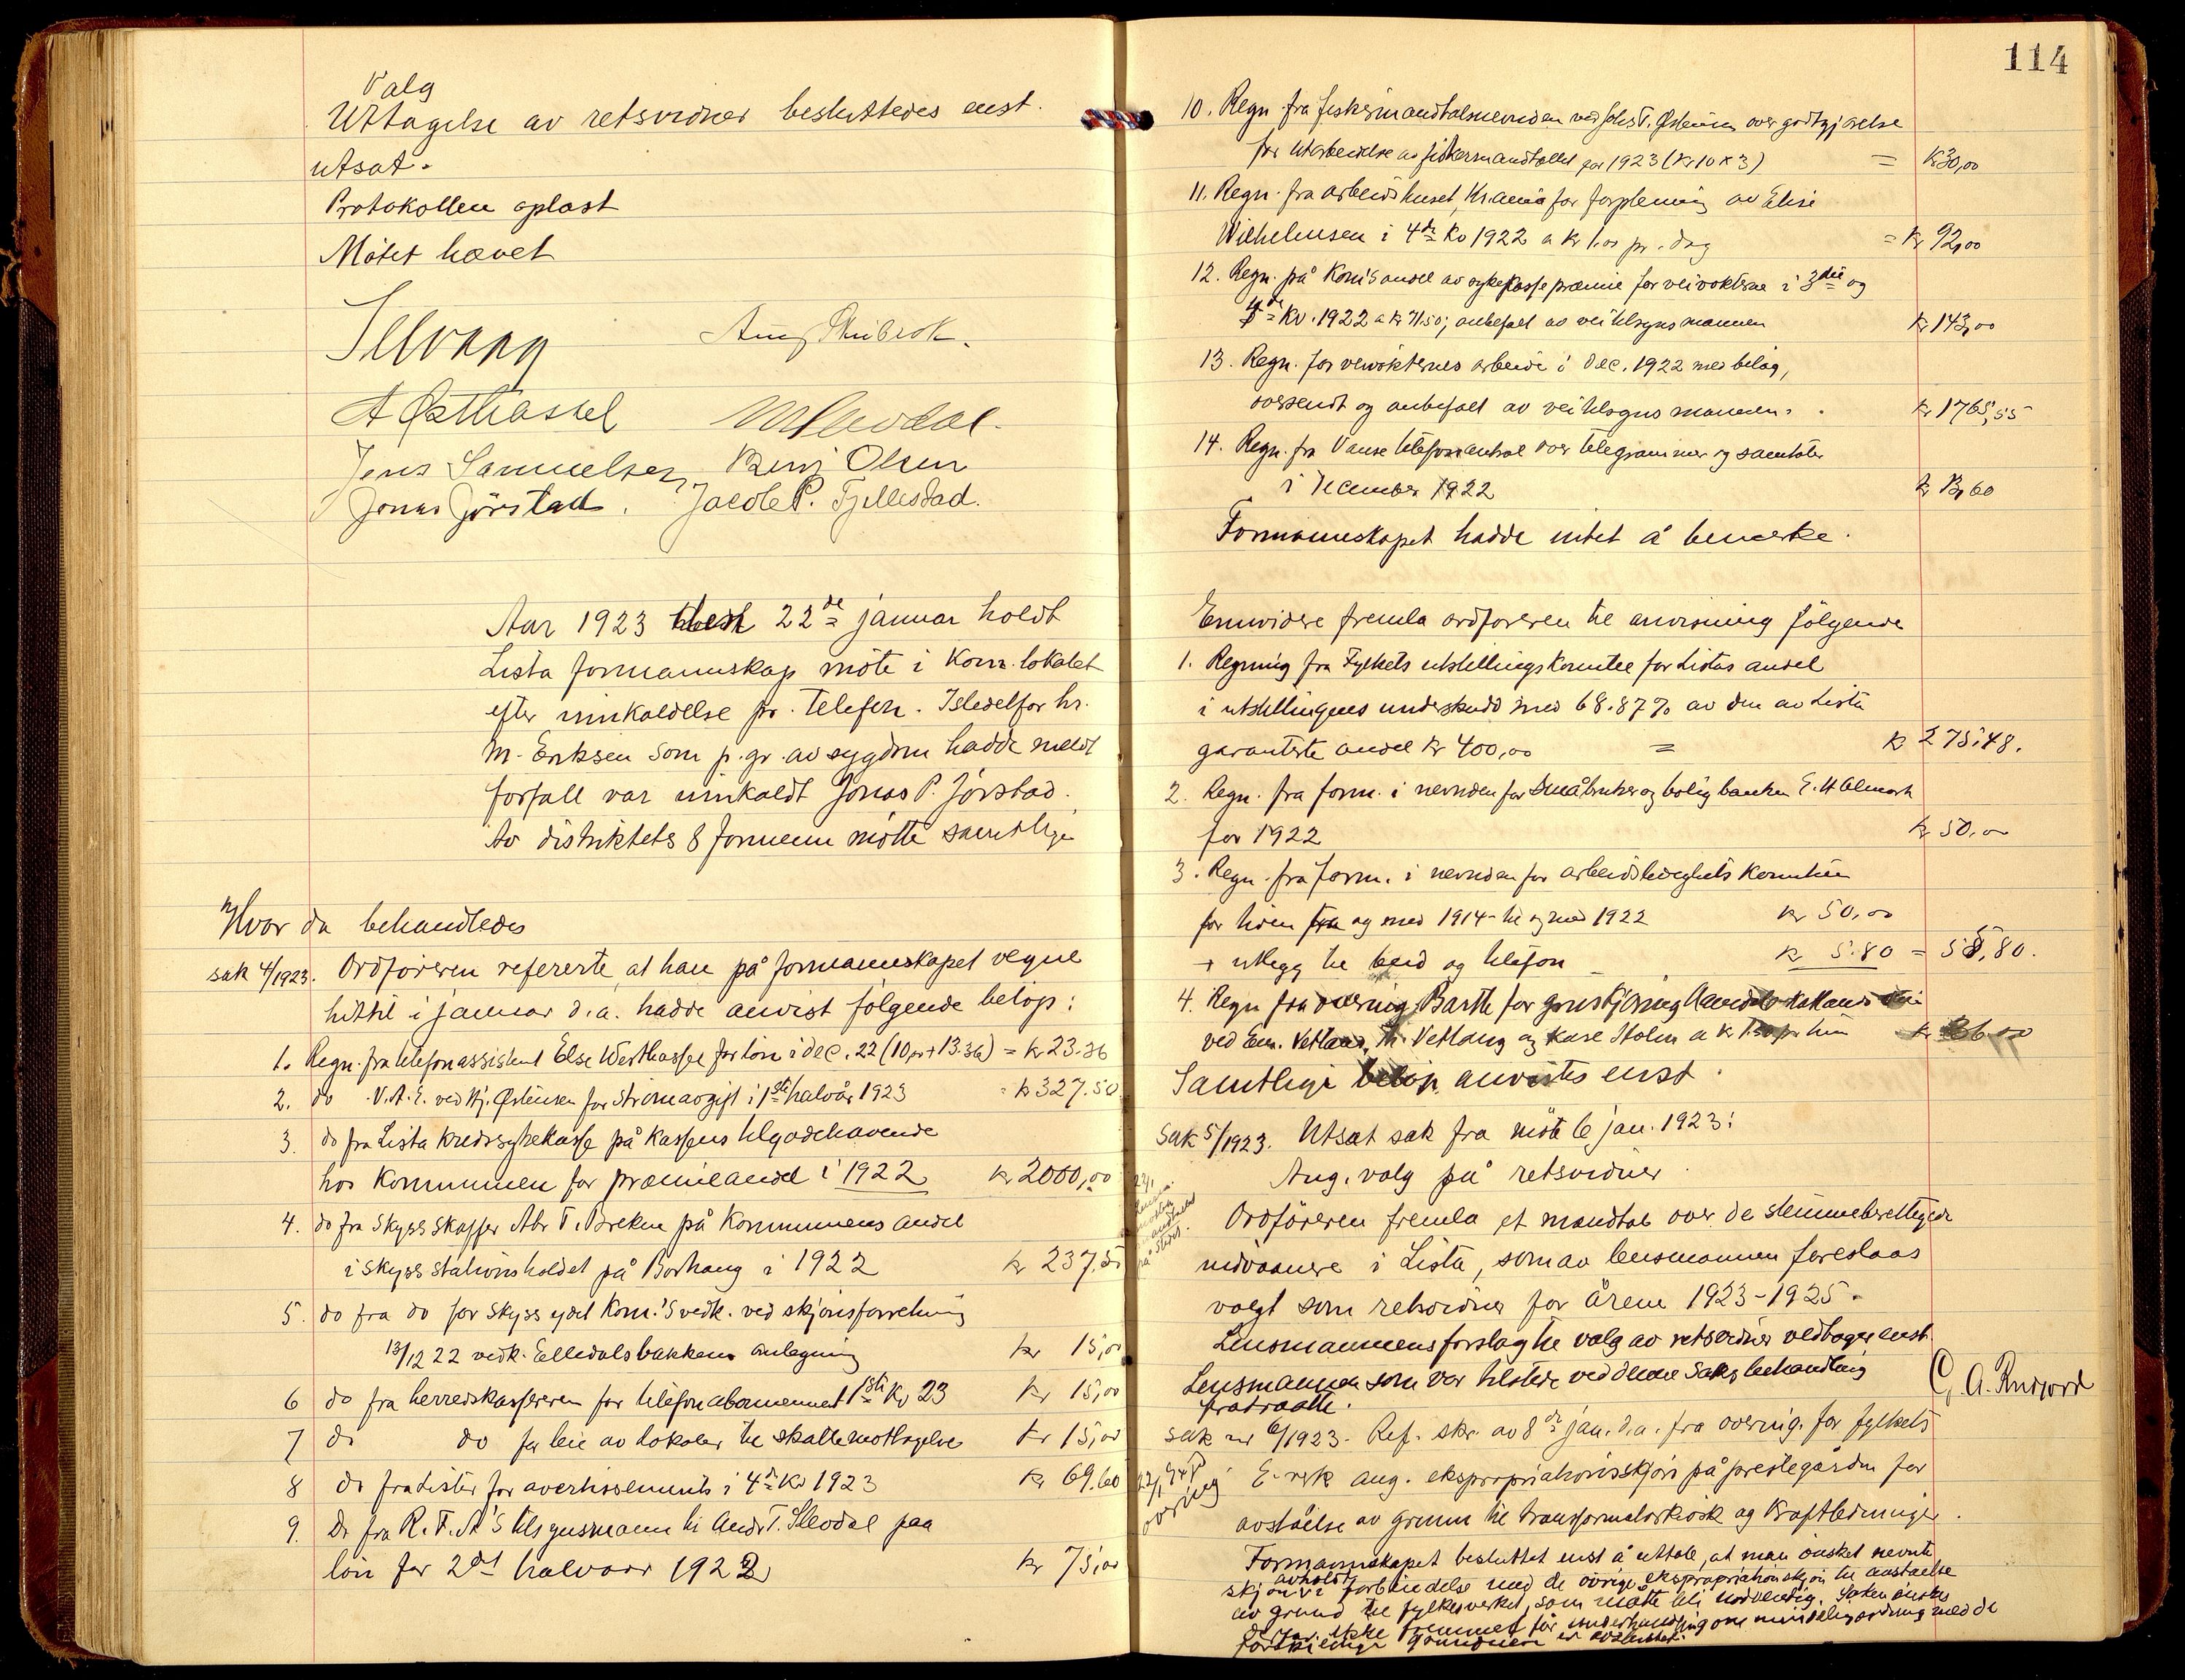 Valg
Uttagelse av retsvidner besluttedes enst.
utsat.
Protokollen oplæst
Mötet hævet
A Østhassel
Jens Samuelsen, Benj Olsen
Jonas Jörstad. Jacob P. Fjellestad.
Aar 1923 22de januar holdt
Lista formannskap möte i Kom. lokalet
efter innkaldelse pr. telefon. Istedetfor hr.
M. Eriksen som p. gr. av sygdom hadde meldt
forfall var innkaldt Jonas P. Jörstad.
Av distriktets 8 formenn mötte samtlige
Hvor da behandledes
sak 4/1923. Ordföreren refererte, at han på formannskapet vegne
hittil i januar d.a. hadde anvist fölgende belöp:
1. Regn. fra telefonassistent Else Westhassel for lön i dec. 22 (10,00+13.36) = kr 23.36
2. do V.A.E. ved Hj. Östensen for strömavgift i 1ste halvår 1923 = kr 327.50
3. do fra Lista kredssykekasse på kassens tilgodehavende
hos Kommunen for præmieandel i 1922 kr 2000,00
4. do fra Skyssskaffer Abr. T. Breken på Kommunens andel
i skyssstationsholdet på Borhaug i 1922 kr 237,50
5. do fra do for skyss ydet Kom.'s vedk. ved skjönsforretning
13/12 22 vedk. Elledalsbakkens anlegning kr 15,00
6 do fra herredskassereren for telefonabonnement 1ste Kv 23 kr 15,00
7 do do for leie av lokaler til skattemottagelse kr 15,00
8 do fra Lister for avertissements i 4de Kv 1923 kr 69.60
9. Do fra R.F.A's tilsynsmann hr Andr. T. Slevdal paa
lön for 2det halvaar 1922 kr 75,00
114
10. Regn. fra fiskermandtalsnevnden ved Johs T. Östensen over godtgjörelse
for utarbeidelse av fiskermandtallet for 1923 (kr 10 x 3) = kr 30,00
11. Regn. fra arbeidshuset, Kr.ania for forpleining av Elise
Wilhelmsen i 4de Kv 1922 a kr 1.00 pr. dag = kr 92,00
12. Regn. på Kom's andel av sykekassepræmie for veivokterne i 3die og
4de Kv. 1922 a kr 71.50; anbefalt av veitilsynsmannen kr 143,00
13. Regn. for veivokternes arbeide i dec. 1922 med bilag,
oversendt og anbefalt av veitilsynsmannen. kr 1765,55
14. Regn. fra Vanse telefoncentral over telegrammer og samtaler
i december 1922 kr 13,60
Formannskapet hadde intet å bemerke.
Ennvidere fremla ordföreren til anvisning fölgende
1. Regning fra Fylkets utstillingskomitee for Listas andel
i utstillingens underskudd med 68.87% av den av Lista
garanterte andel kr 400,00 = kr 275.48.
2. Regn. fra form. i nevnden for Småbruker og bolig banken E. H Elmark
for 1922 kr 50.00
3. Regn. fra form. i nevnden for arbeidsledighets komiteen
for tiden fra og med 1914 til og med 1922 kr 50,00
+ utlegg til bud og telefon kr 5.80 = 55,80.
4. Regn fra overing. Barth for gruskjöring
ved Em. Vetland, Th. Vetlang og Kare Stolen a kr 1.50 pr. time
Samtlige belöp anvistes enst.
Sak 5/1923. Utsat sak fra möte 6 jan. 1923:
Ang. valg på retsvidner.
Ordföreren fremla et mandtal over de stemmeberettigede
indvaanere i Lista, som av lensmannen foreslaas
valgt som retsvidner for årene 1923-1925.
Lensmannens forslag til valg av retsvidner vedtages enst.
Lensmannen som var tilstede ved denne saks behandling
fratraatte.
sak nr 6/1923. Ref. skr. av 8de jan. d.a. fra overing. for fylkets
E-verk ang. ekspropriationsskjön på prestegården for
avståelse av grunn til transformatorkiosk og kraftledninger.
Formannskapet besluttet enst å uttale, at man önsket nevnte
skjön avholdt i forbindelse med de övrige ekspropriationsskjön til avståelse
av grund til fylkesverket, som måtte bli nödvendig. Saken önskes
derfor ikke fremmet för underhandling om mindelig ordning med de
forskjellige grunneiere er avsluttet.